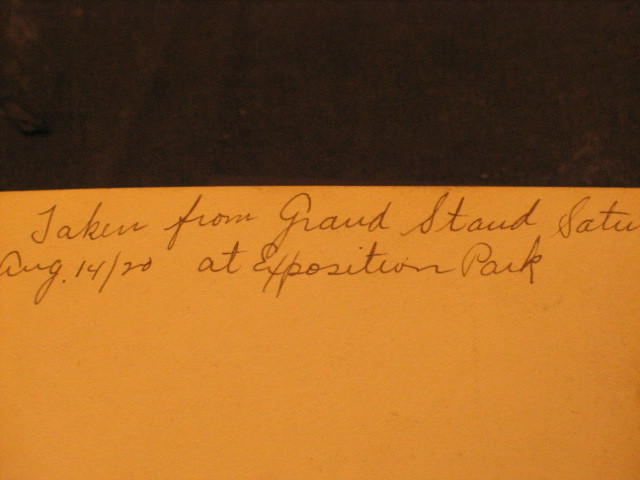 Taken from Grand Stand Satu
Aug. 14/20 at Exposition Park